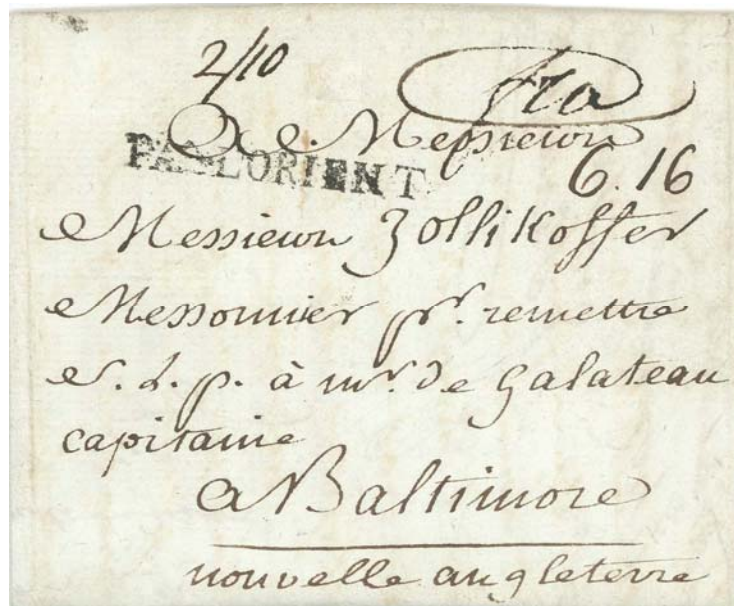 2/10
fco
A Messieurs
PAR LORIENT
6.16
Messieurs Zollikoffer
Messonnier pr. remettre
S. d. p. à mr. de Galateau
capitaine
a Baltimore
nouvelle angleterre